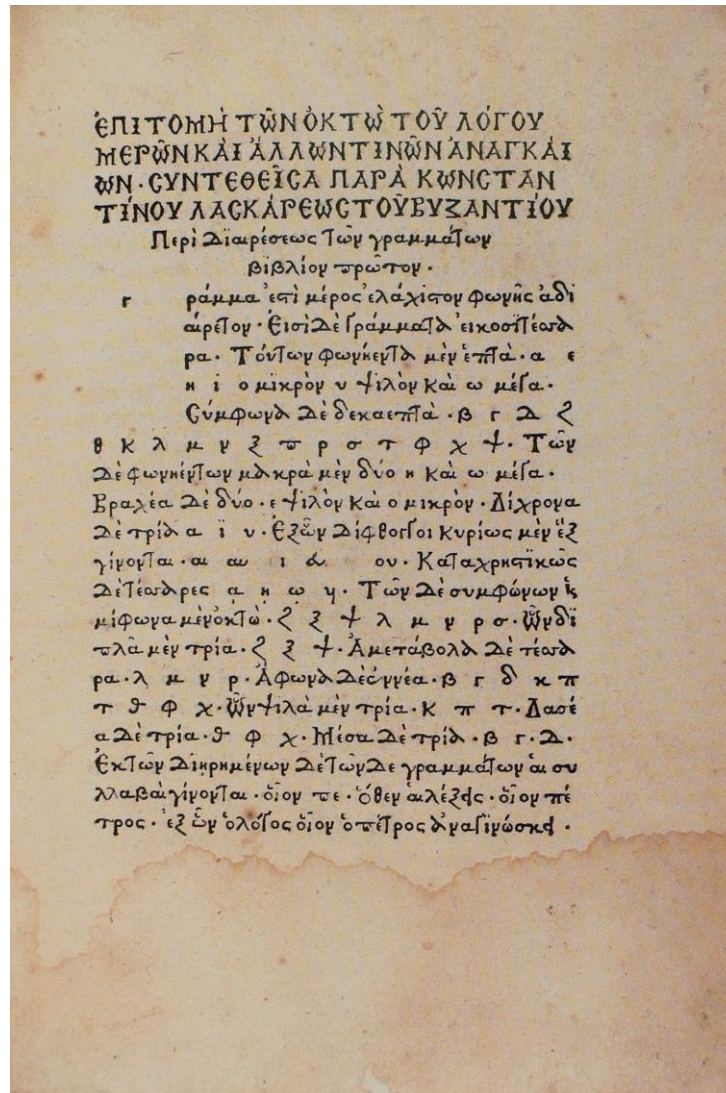 ἘΠΙΤΟΜῊ ΤΩ͂Ν ὈΚΤῺ ΤΟΥ͂ ΛΌΓΟΥ
ΜΕΡΩ͂Ν ΚΑῚ ἌΛΛΩΝ ΤΙΝΩ͂Ν ἈΝΑΓΚΑΊ
ΩΝ · ϹΥΝΤΕΘΕΙ͂ϹΑ ΠΑΡᾺ ΚΩΝϹΤΑΝ
ΤΊΝΟΥ ΛΑϹΚΆΡΕΩϹ ΤΟΥ͂ ΒΥΖΑΝΤΊΟΥ
Περὶ Διαιρέσεως τῶν γραμμάτων
βιβλίον πρῶτον ·
Γ ράμμα ἐστὶ μέρος ἐλάχιστον φωνῆς ἀδι
αίρετον · Εἰσὶ Δὲ Γράμματα εἰκοσιτέσσα
ρα · Τούτων φωνήεντα μὲν ἑπτά · α ε
η ι ο μικρὸν υ ψιλὸν καὶ ω μέγα ·
Σύμφωνα Δὲ δεκαεπτὰ · β γ Δ ζ
θ κ λ μ ν ξ π ρ σ τ φ χ ψ · Τῶν
Δὲ φωνηέντων μακρὰ μὲν δύο η καὶ ω μέγα ·
Βραχέα Δὲ δύο · ε ψιλὸν καὶ ο μικρὸν · Δίχρονα
Δὲ τρία α ϊ υ · Ἐξῶν Δίφθογγοι κυρίως μὲν ἓξ
γίνονται · αι αυ ει ευ οι ου · Καταχρηστικῶς
Δὲ τέσσαρες ᾳ ῃ ῳ υι · Τῶν Δὲ συμφώνων ἡ
μίφωνα μὲν ὀκτώ · ζ ξ ψ λ μ ν ρ σ · Ὧν δι
πλᾶ μὲν τρία · ζ ξ ψ · Ἀμετάβολα Δὲ τέσσα
ρα · λ μ ν ρ · Ἄφωνα Δὲ ἐννέα · β γ δ κ π
τ θ φ χ · Ὧν ψιλὰ μὲν τρία · κ π τ · Δασέ
α Δὲ τρία · θ φ χ · Μέσα Δὲ τρία · β γ · Δ ·
Ἐκ τῶν Διῃρημένων Δὲ τῶνΔε γραμμάτων αἱ συ
λλαβαὶ γίνονται · οἷον πε · ὅθεν αἱ λέξεις · οἷον πέ
τρος · ἐξ ὧν ὁ λόγος οἷον ὁ πέτρος ἀναγινώσκει ·